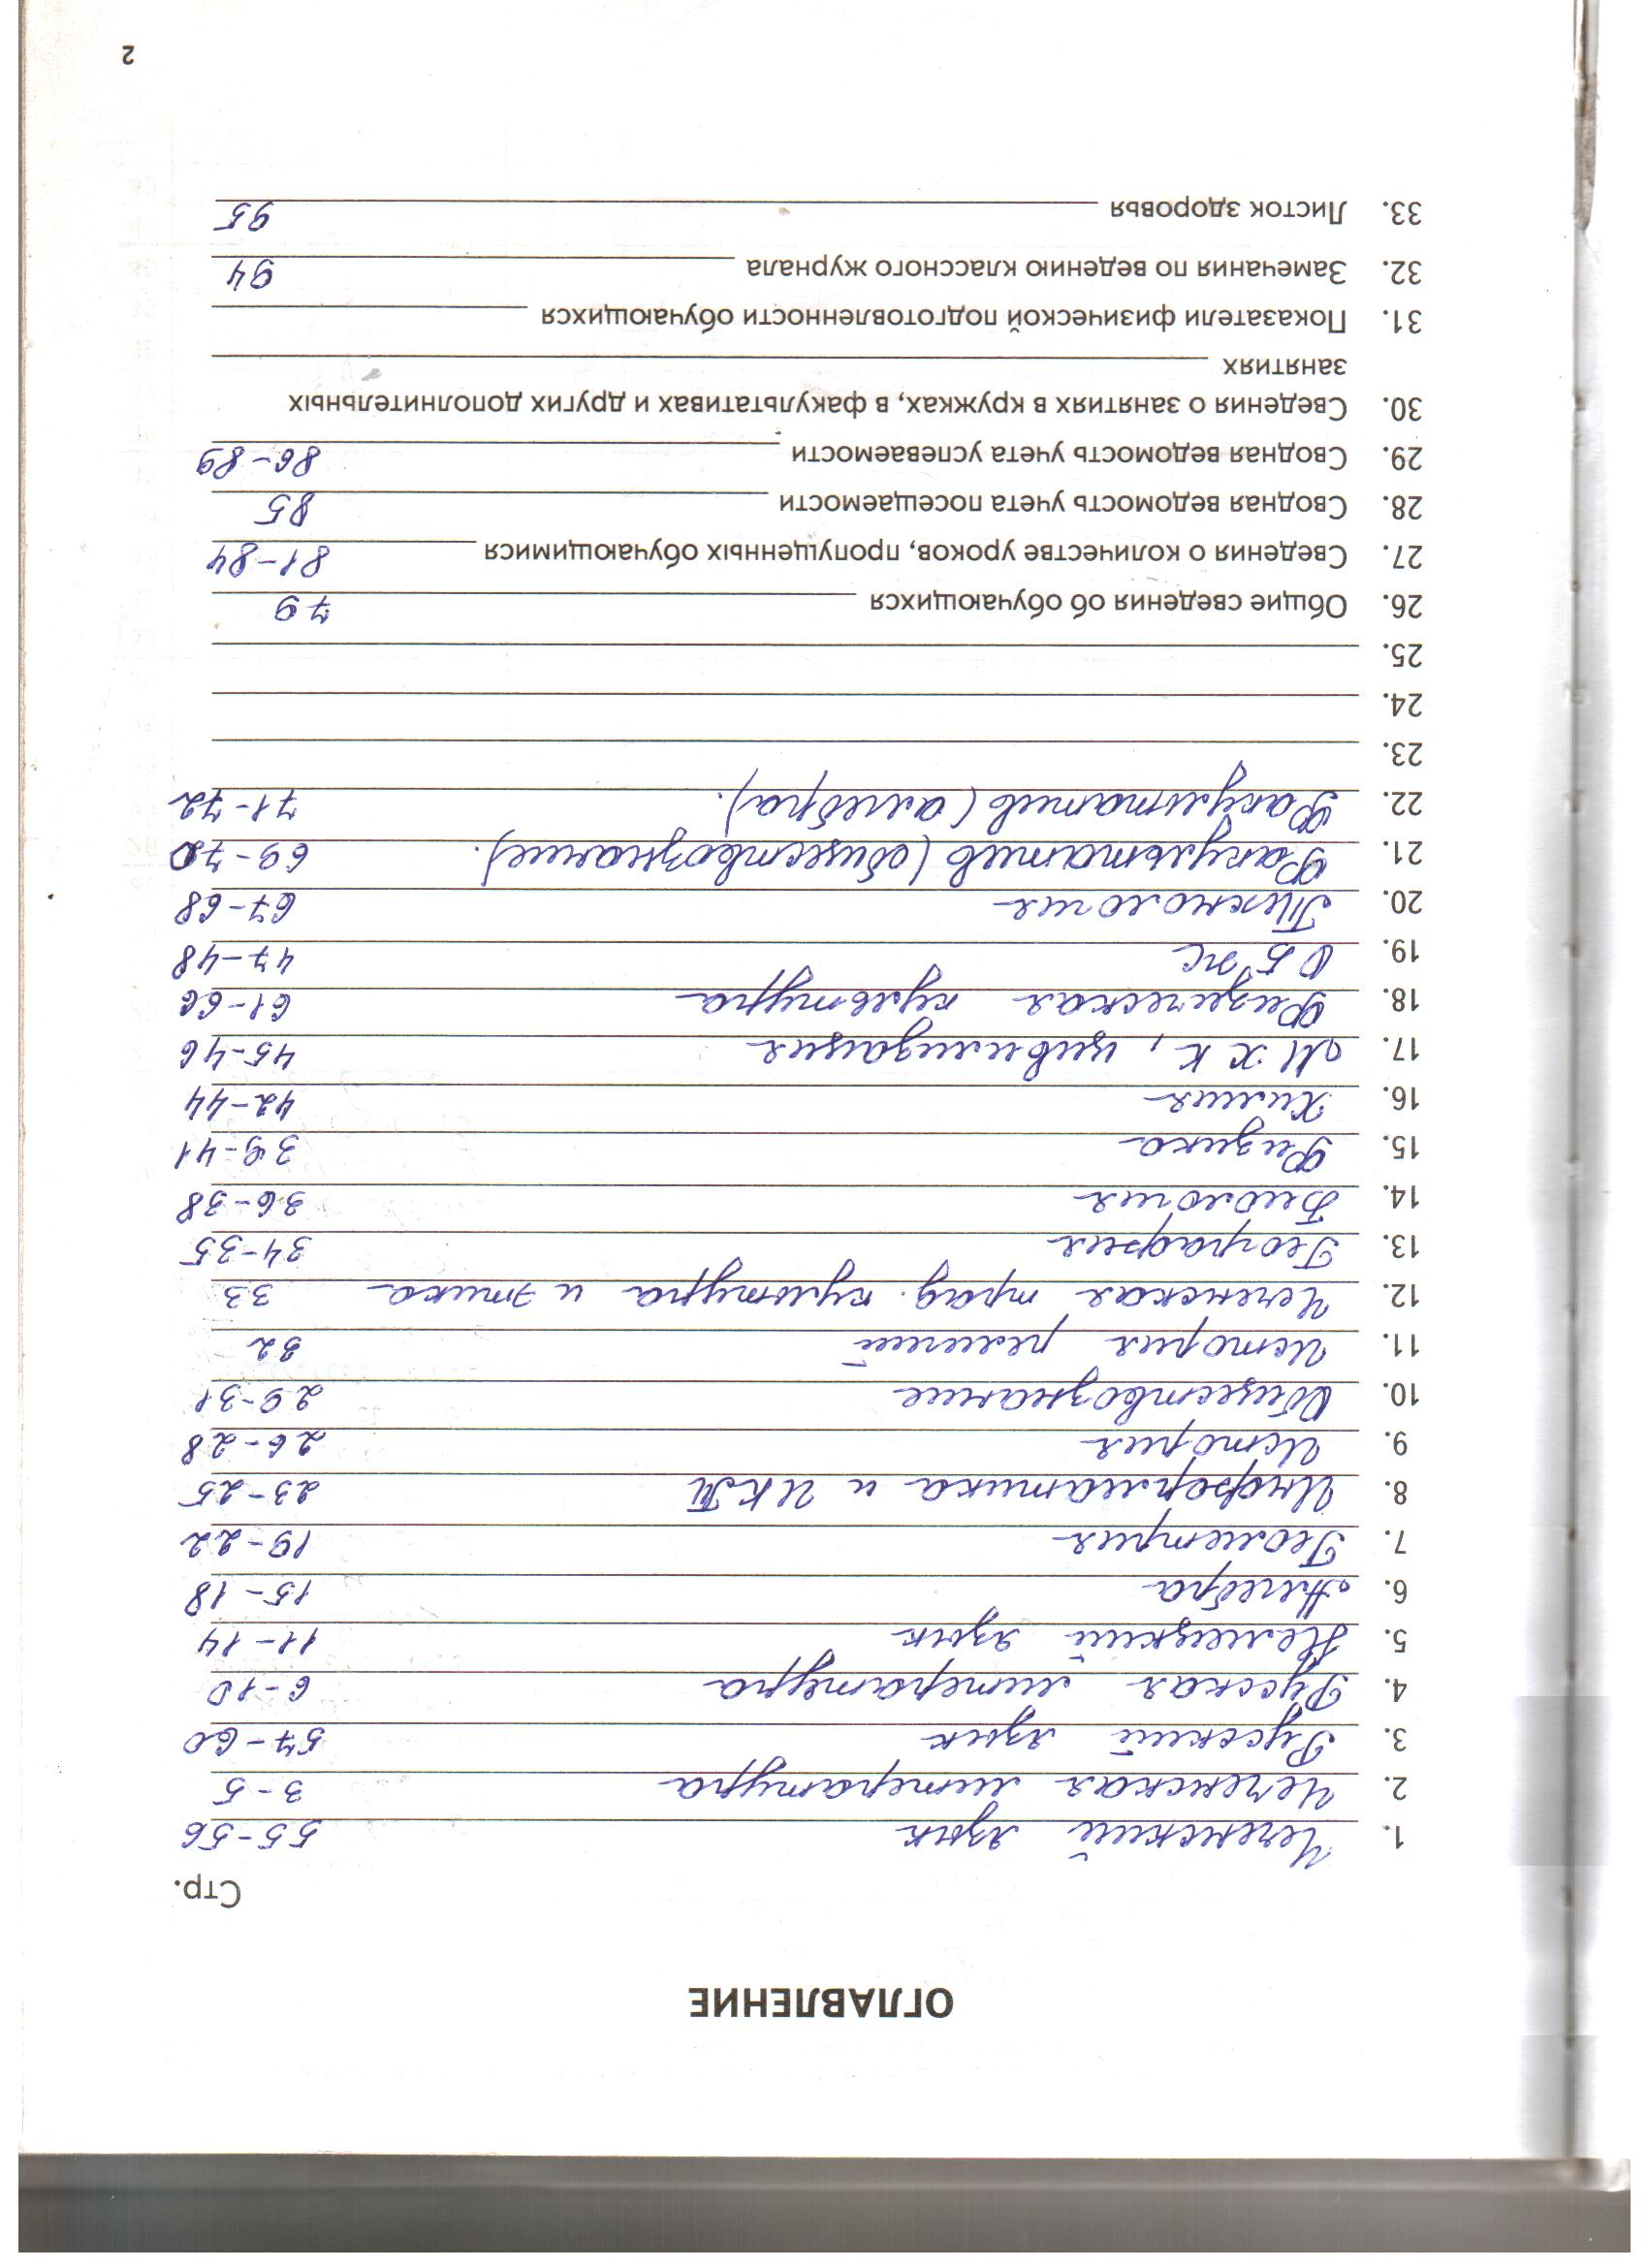 ОГЛАВЛЕНИЕ
Стр.
1. Чеченский язык 55-56
2. Чеченская литература 3-5
3. Русский язык 57-60
4. Русская литература 6-10
5. Немецкий язык 11-14
6. Алгебра 15-18
7. Геометрия 19-22
8. Информатика и ИКТ 23-25
9. История 26-28
10. Обществознание 29-31
11. История религий 32
12. Чеченская трад. культура и этика 33
13. География 34-35
14. Биология 36-38
15. Физика 39-41
16. Химия 42-44
17. МХК, цивилизация 45-46
18. Физическая культура 61-66
19. ОБЖ 47-48
20. Технология 67-68
21. Факультатив (обществознание). 69-70
22. Факультатив (алгебра). 71-72
23.
24.
25.
26. Общие сведения об обучающихся 79
27. Сведения о количестве уроков, пропущенных обучающимися 81-84
28. Сводная ведомость учета посещаемости 85
29. Сводная ведомость учета успеваемости 86-89
30. Сведения о занятиях в кружках, в факультативах и других дополнительных
занятиях
31. Показатели физической подготовленности обучающихся
32. Замечания по ведению классного журнала 94
33. Листок здоровья 95
2